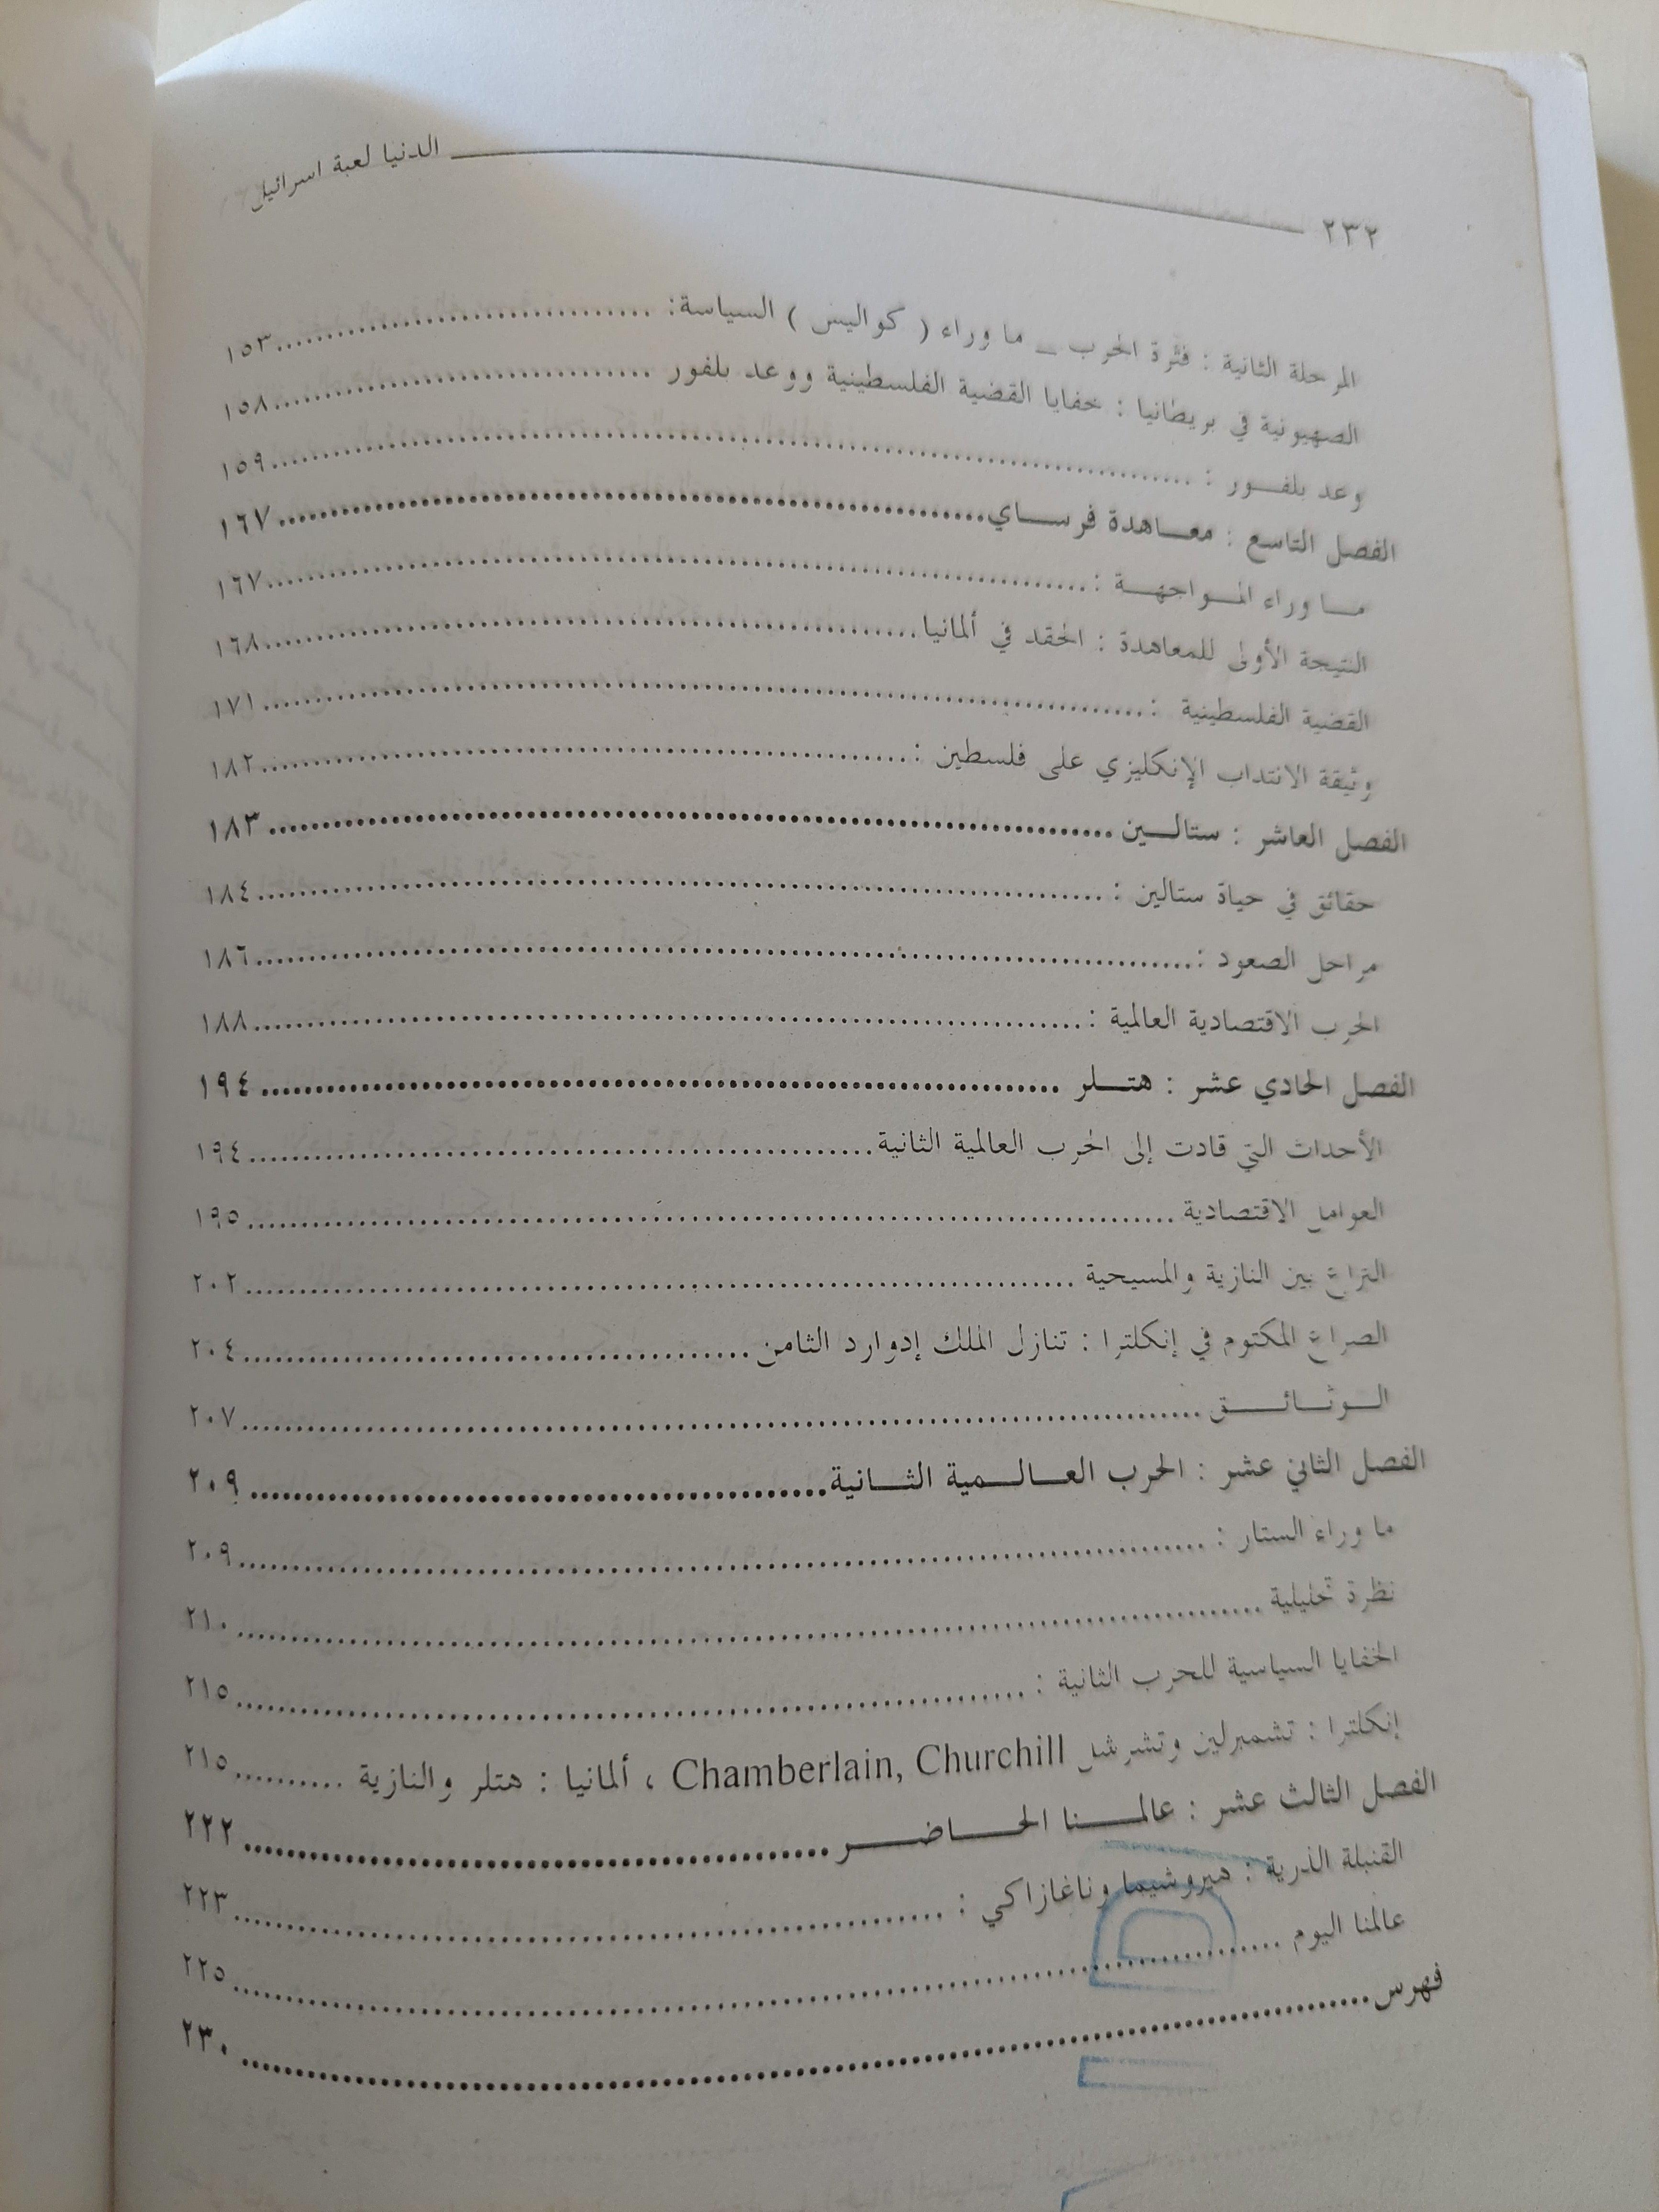 ٢٣٢ الدنيا لعبة اسرائيل
المرحلة الثانية : فترة الحرب ــ ما وراء ( كواليس ) السياسة: .......... ١٥٣
الصهيونية في بريطانيا : خفايا القضية الفلسطينية ووعد بلفور .......... ١٥٨
وعد بلفــور : .......... ١٥٩
الفصل التاسع : معــاهدة فرســاي .......... ١٦٧
مــا وراء المــواجهــة : .......... ١٦٧
النتيجة الأولى للمعاهدة : الحقد في ألمانيا .......... ١٦٨
القضية الفلسطينية : .......... ١٧١
وثيقة الانتداب الإنكليزي على فلسطين : .......... ١٨٢
الفصل العاشر : ستالــين .......... ١٨٣
حقائق في حياة ستالين : .......... ١٨٤
مراحل الصعود : .......... ١٨٦
الحرب الاقتصادية العالمية : .......... ١٨٨
الفصل الحادي عشر : هتــلر .......... ١٩٤
الأحداث التي قادت إلى الحرب العالمية الثانية .......... ١٩٤
العوامل الاقتصادية .......... ١٩٥
النزاع بين النازية والمسيحية .......... ٢٠٢
الصراع المكتوم في إنكلترا : تنازل الملك إدوارد الثامن .......... ٢٠٤
الــوثــائــق .......... ٢٠٧
الفصل الثاني عشر : الحرب العــالــمية الثــانية .......... ٢٠٩
ما وراء الستار : .......... ٢٠٩
نظرة تحليلية .......... ٢١٠
الخفايا السياسية للحرب الثانية : .......... ٢١٥
إنكلترا : تشمبرلين وتشرشل Chamberlain, Churchill ، ألمانيا : هتلر والنازية .......... ٢١٥
الفصل الثالث عشر : عالمــنا الحــاضــر .......... ٢٢٢
القنبلة الذرية : هيروشيما وناغازاكي : .......... ٢٢٣
عالمنا اليوم .......... ٢٢٥
فهرس .......... ٢٣٠